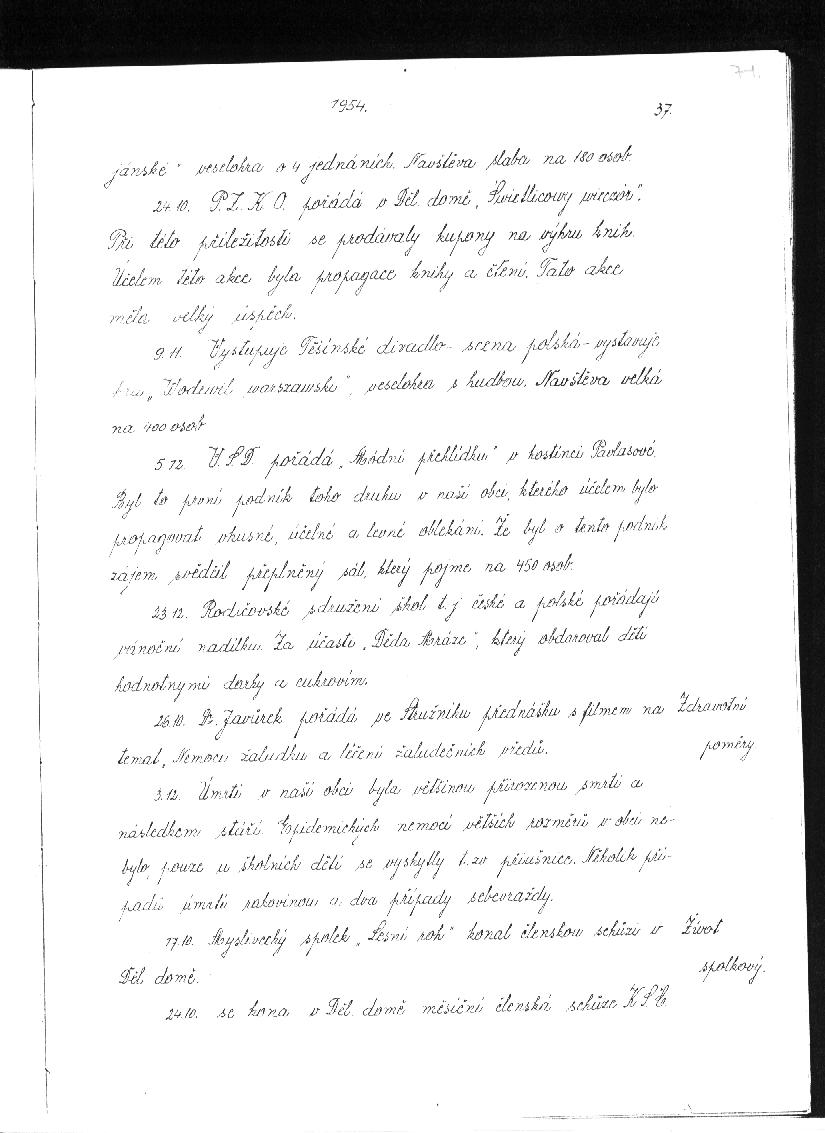 71.
1954.
37.
jánské" veselohra o 4 jednáních. Navštěva slaba na 180 osob.
24.10. P.Z.K.O. pořádá v Děl. domě „Świetlicowy wieczór".
Při této příležitosti se prodávaly kupony na výhru knih.
Účelem této akce byla propagace knihy a čtení. Tato akce
měla velký úspěch.
9.11. Vystupuje Těšínské divadlo - scena polská - vystavuje
hru „Wodewil warszawski", veselohra s hudbou. Navštěva velká
na 400 osob
5.12. V.S.D. pořádá „Módní přehlídku" v hostinci Pavlasové.
Byl to první podnik toho druhu v naší obci, kterého účelem bylo
propagovat vkusné, účelné a levné oblekání. Že byl o tento podnik
zájem svědčil přeplněný sál, který pojme na 450 osob.
23.12. Rodičovské sdružení škol t.j české a polské pořádají
vánoční nadílku. Za účasti „Děda Mráze", který obdaroval děti
hodnotnými darky a cukrovím.
26.10. Dr. Javůrek pořádá ve Stružníku přednášku s filmem na
Zdravotní
temat „Nemocu žaludku a léčení žaludečních vředů.
poměry
3.12. Úmrtí v naší obci byla většinou přirozenou smrtí a
následkem stáří. Epidemických nemocí větších rozměrů v obci ne-
bylo, pouze u školních dětí se vyskytly t.zv příušnice. Několik pří-
padů úmrtí rakovinou a dva případy sebevraždy.
17.10. Myslivecký spolek „Lesní roh" konal členskou schůzi v
Život
Děl. domě.
spolkový.
24.10. se kona v Děl. domě měsíční členská schůze K.S.Č.